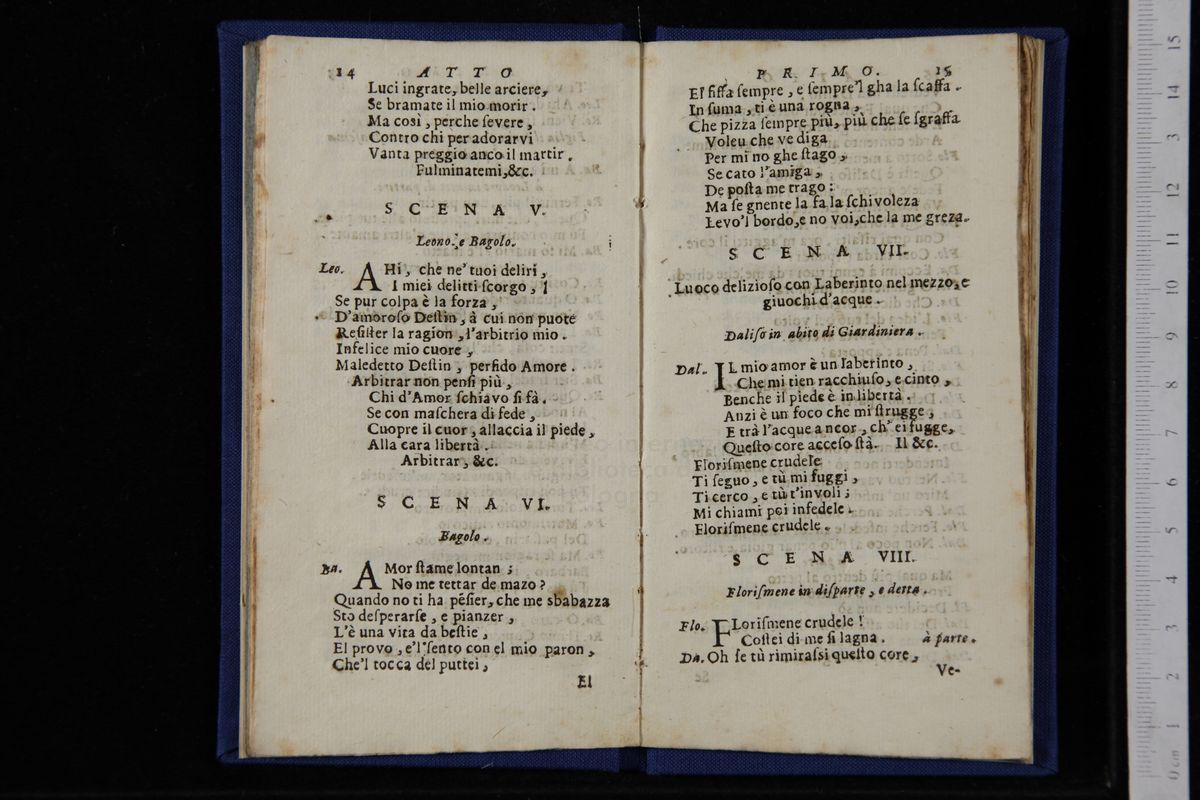 14 ATTO
Luci ingrate, belle arciere,
Se bramate il mio morir.
Ma così, perche ſevere,
Contro chi per adorarvi
Vanta preggio anco il martir.
Fulminatemi, &c.
SCENA V.
Leono. e Bagolo.
Leo. AHi, che ne' tuoi deliri,
I miei delitti ſcorgo,
Se pur colpa è la forza,
D'amoroſo Deſtin, à cui non puote
Reſiſter la ragion, l'arbitrio mio.
Infelice mio cuore,
Maledetto Deſtin, perfido Amore.
Arbitrar non penſi più,
Chi d'Amor ſchiavo ſi fà.
Se con maſchera di fede,
Cuopre il cuor, allaccia il piede,
Alla cara libertà.
Arbitrar, &c.
SCENA VI.
Bagolo.
Ba. AMor ſtame lontan;
No me tettar de mazo?
Quando no ti ha pẽſier, che me sbabazza
Sto deſperarſe, e pianzer,
L'è una vita da beſtie,
El provo, e'l ſento con el mio paron,
Che'l tocca del puttei,
El
PRIMO. 15
El fiſſa ſempre, e ſempre'l gha la ſcaffa.
In ſuma, ti è una rogna,
Che pizza ſempre più, più che ſe ſgraffa
Voleu che ve diga
Per mi no ghe ſtago,
Se cato l'amiga,
De poſta me trago:
Ma ſe gnente la fa la ſchivoleza
Levo'l bordo, e no voi, che la me greza.
SCENA VII.
Luoco delizioſo con Laberinto nel mezzo, e
giuochi d'acque.
Daliſo in abito di Giardiniera.
Dal. IL mio amor è un laberinto,
Che mi tien racchiuſo, e cinto,
Benche il piede è in libertà.
Anzi è un foco che mi ſtrugge,
E trà l'acque ancor, ch' ei fugge,
Queſto core acceſo ſtà. Il &c.
Floriſmene crudele
Ti ſeguo, e tù mi fuggi,
Ti cerco, e tù t'involi;
Mi chiami poi infedele.
Floriſmene crudele.
SCENA VIII.
Floriſmene in diſparte, e detta.
Flo. FLoriſmene crudele!
Coſtei di me ſi lagna. à parte.
Da. Oh ſe tù rimiraſsi queſto core,
Ve-